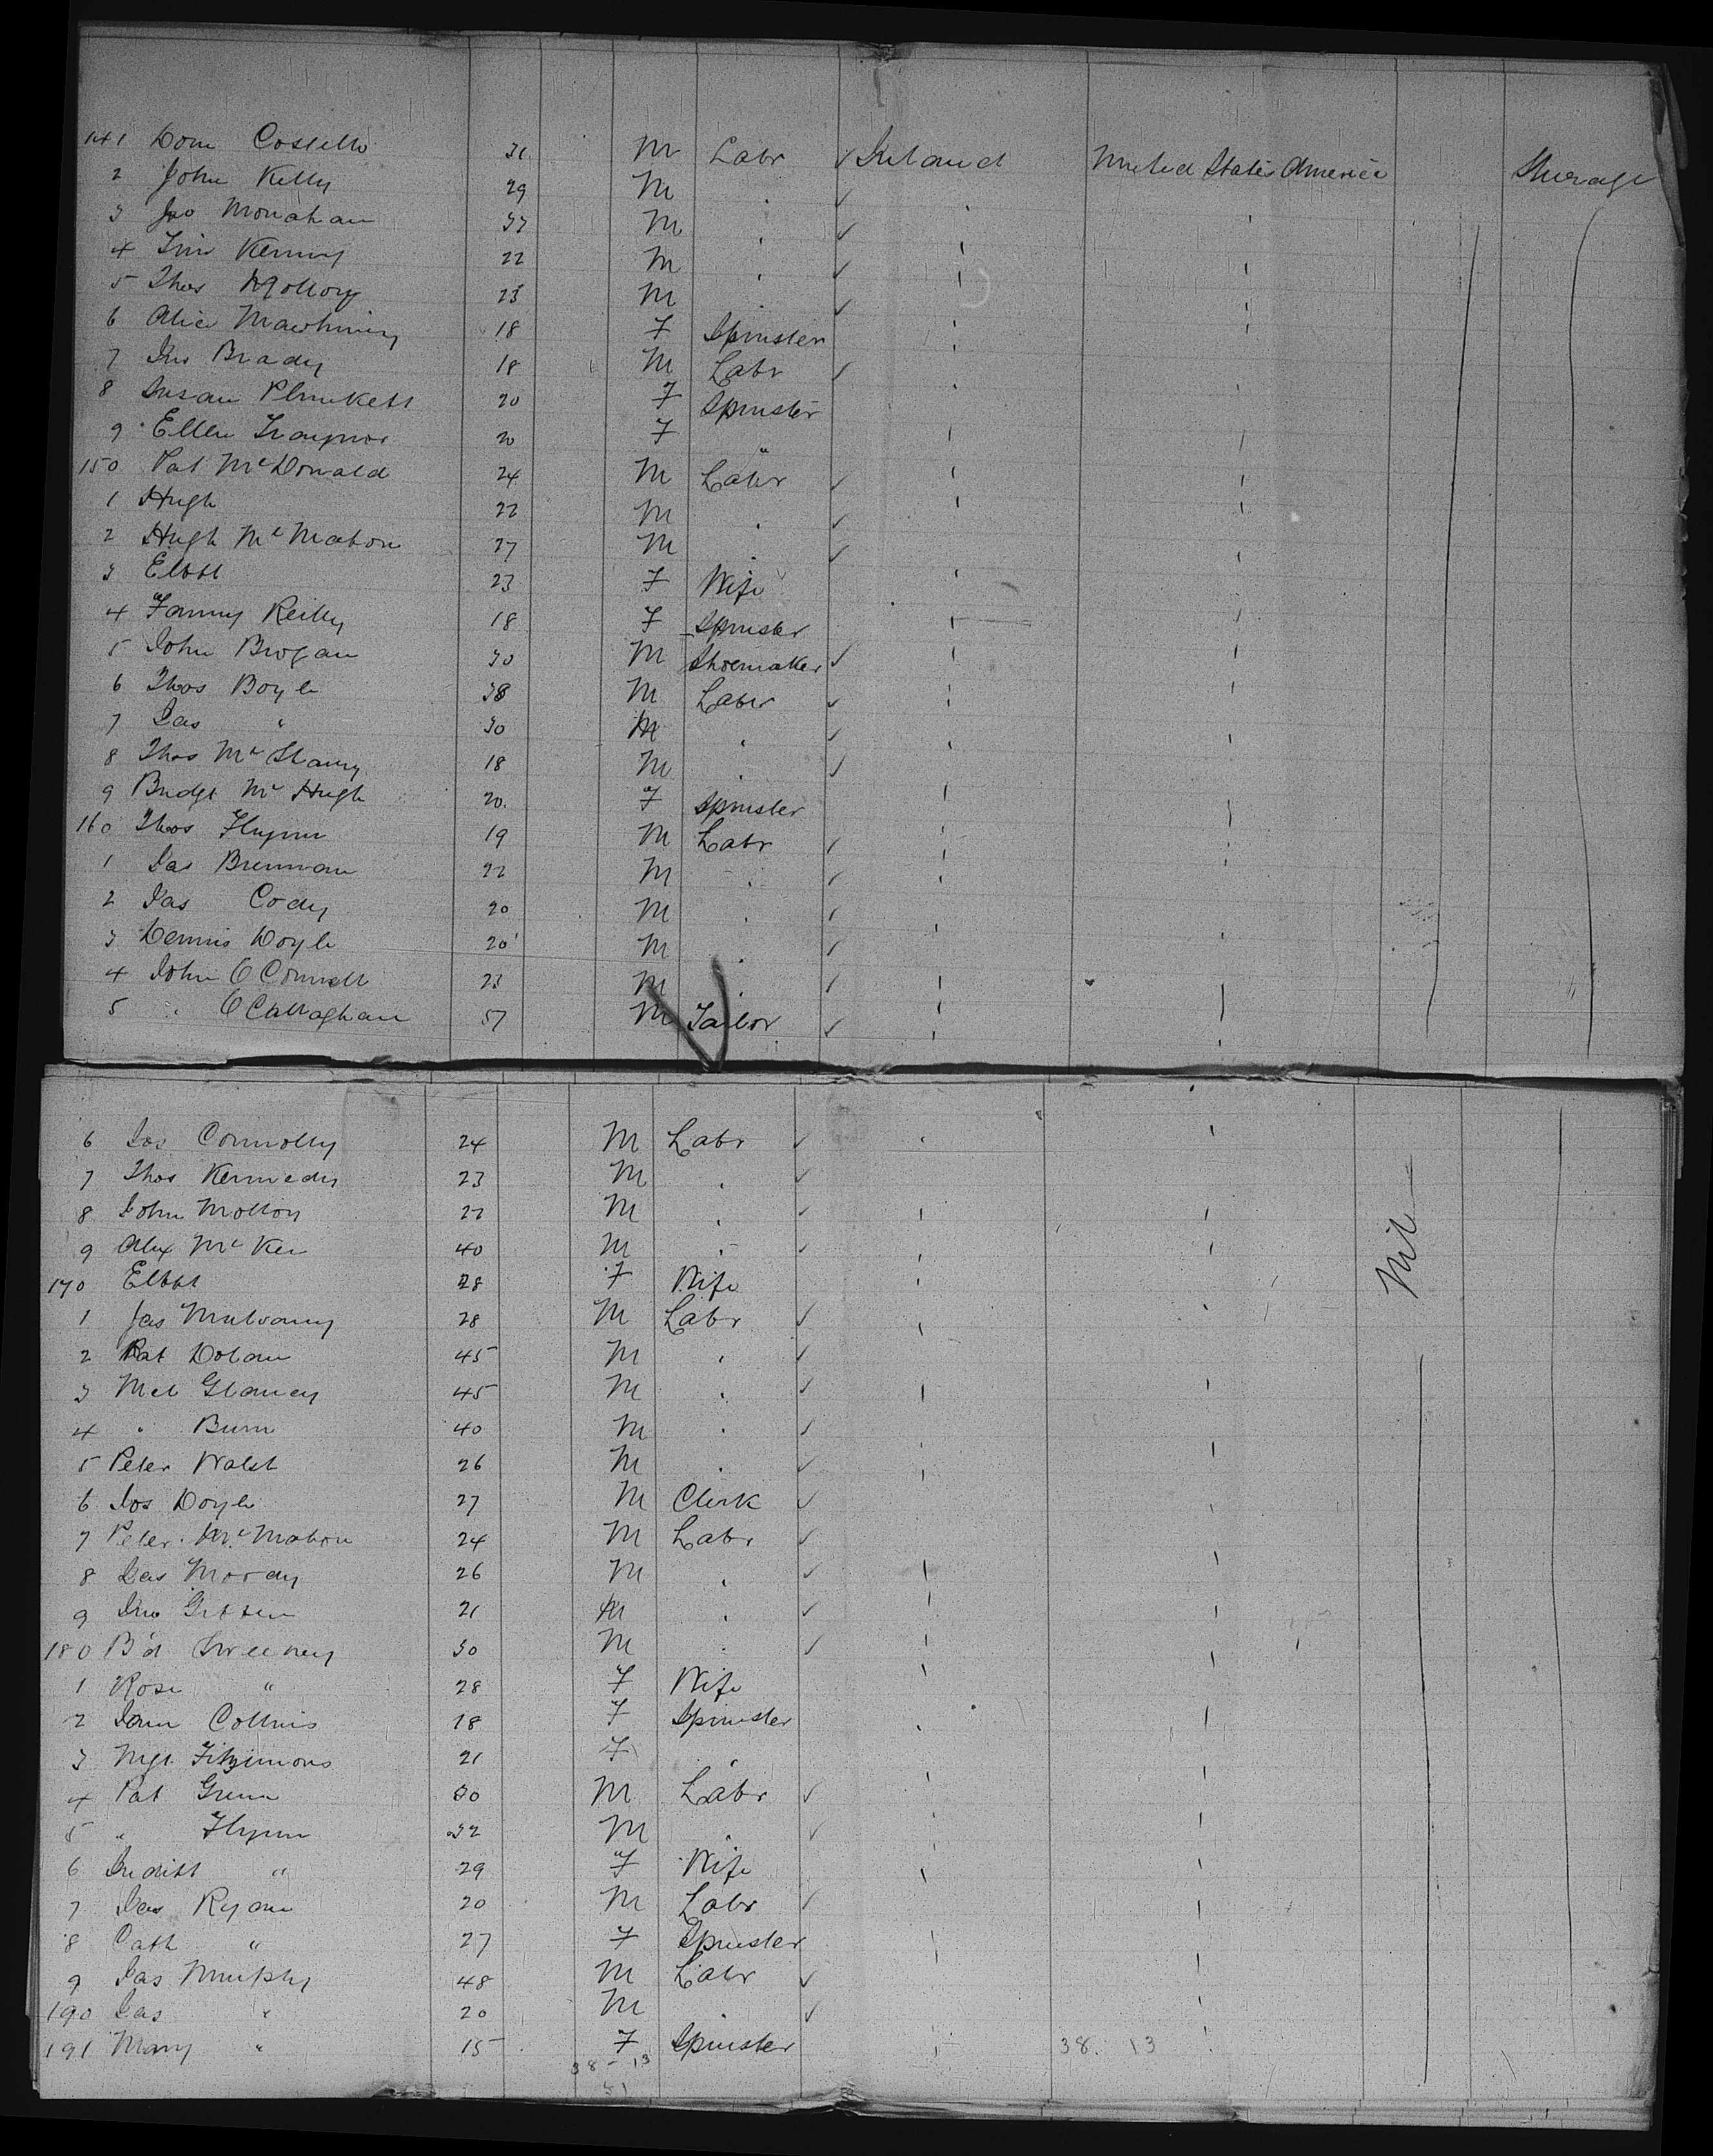 141 Dom Costello 31 M Labr ✓ Ireland United States America Steerage
2 John Kelly 29 M " ✓ " "
3 Jno Monahan 33 M " ✓ " "
4 Tim Kenny 22 M " ✓ " "
5 Thos Molloy 23 M " ✓ " "
6 Alice Mawhiney 18 F Spinster " "
7 Jno Brady 18 M Labr ✓ " "
8 Susan Plunkett 20 F Spinster " "
9 Ellen Traynor 20 F " " "
150 Pat McDonald 24 M Labr ✓ " "
1 Hugh 22 M " ✓ " "
2 Hugh McMahon 27 M " ✓ " "
3 Elbth 23 F Wife " "
4 Fanny Reilly 18 F Spinster " "
5 John Brogan 30 M Shoemaker ✓ " "
6 Thos Boyle 38 M Labr ✓ " "
7 Jas " 30 M " ✓ " "
8 Thos 18 M " ✓ " "
9 Bridgt McHugh 20 F Spinster " "
160 Thos Flynn 19 M Labr ✓ " "
1 Jas Brennan 22 M " ✓ " "
2 Jas Cody 20 M " ✓ " "
3 Dennis Doyle 20 M " ✓ " "
4 John O'Connell 23 M " ✓ " "
5 " O'Callaghan 57 M Tailor ✓ " "
6 Jos Connolly 24 M Labr ✓ " "
7 Thos Kennedy 23 M " ✓ " "
8 John Molloy 22 M " ✓ " "
9 Alex McKee 40 M " ✓ " " Nil
170 Elbth 28 F Wife " "
1 Jas Mulvany 28 M Labr ✓ " "
2 Pat Dolan 45 M " ✓ " "
3 Mcl Glancy 45 M " ✓ " "
4 " Burn 40 M " ✓ " "
5 Peter Walsh 26 M " ✓ " "
6 Jos Doyle 27 M Clerk ✓ " "
7 Peter McMahon 24 M Labr ✓ " "
8 Jas 26 M " ✓ " "
9 Jno 21 M " ✓ " "
180 Bd Sweeney 30 M " ✓ " "
1 Rose " 28 F Wife " "
2 Jane Collins 18 F Spinster " "
3 Mgt Fitzimons 21 F " " "
4 Pat Green 30 M Labr ✓ " "
5 " Flynn 32 M " ✓ " "
6 Judith " 29 F Wife " "
7 Jas Ryan 20 M Labr ✓ " "
8 Cath " 27 F Spinster " "
9 Jas Murphy 48 M Labr ✓ " "
190 Jas " 20 M " ✓ " "
191 Mary " 15 F Spinster " 38. 13 "
38 - 13
51